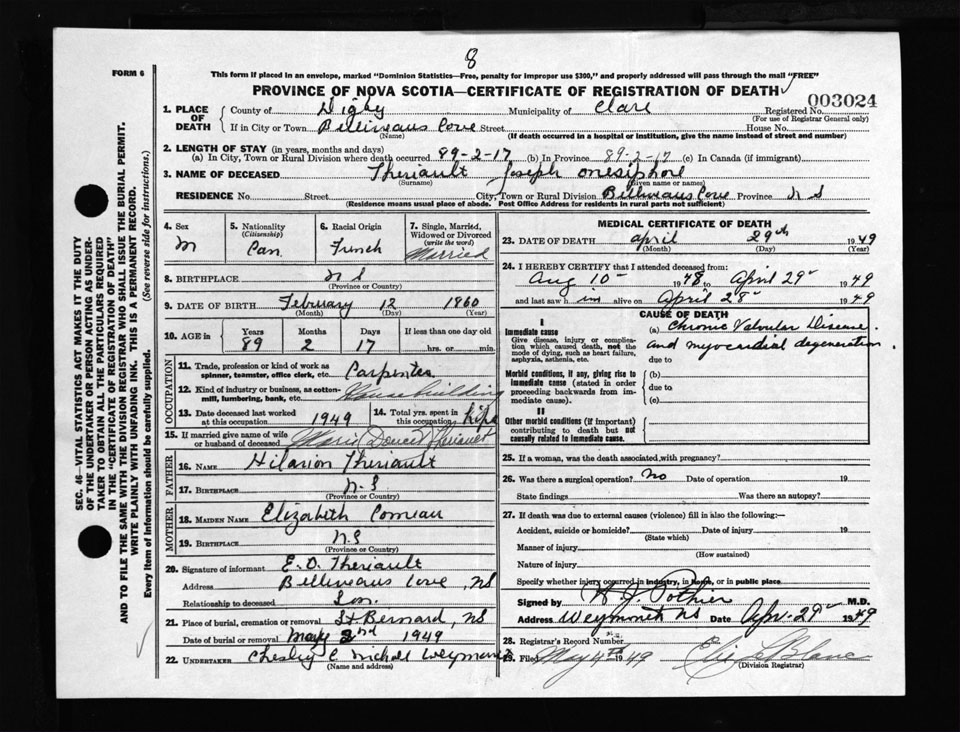 8
FORM 6
This form if placed in an envelope, marked "Dominion Statistics—Free, penalty for improper use $300," and properly addressed will pass through the mail "FREE"
PROVINCE OF NOVA SCOTIA—CERTIFICATE OF REGISTRATION OF DEATH
003024
1. PLACE OF DEATH County of Digby Municipality of Clare Registered No.
(For use of Registrar General only)
If in City or Town Belliveaus Cove Street House No.
(Name) (If death occurred in a hospital or institution, give the name instead of street and number)
2. LENGTH OF STAY (in years, months and days)
(a) In City, Town or Rural Division where death occurred 89-2-17 (b) In Province 89-2-17 (c) In Canada (if immigrant)
3. NAME OF DECEASED Theriault Joseph Onesiphore
(Surname) (Given name or names)
RESIDENCE No. Street City, Town or Rural Division Belliveaus Cove Province N S
(Residence means usual place of abode. Post Office Address for residents in rural parts not sufficient)
4. Sex M
5. Nationality (Citizenship) Can.
6. Racial Origin French
7. Single, Married, Widowed or Divorced (write the word) Married
8. BIRTHPLACE N S
(Province or Country)
9. DATE OF BIRTH February 12 1860
(Month) (Day) (Year)
10. AGE in Years Months Days If less than one day old
89 2 17 hrs. or min.
OCCUPATION
11. Trade, profession or kind of work as spinner, teamster, office clerk, etc. Carpenter
12. Kind of industry or business, as cotton-mill, lumbering, bank, etc. House building
13. Date deceased last worked at this occupation 1949
14. Total yrs. spent in this occupation
15. If married give name of wife or husband of deceased Marie Doucet Theriault
FATHER
16. NAME Hilarion Theriault
17. BIRTHPLACE N.S
(Province or Country)
MOTHER
18. MAIDEN NAME Elizabeth Comeau
19. BIRTHPLACE N.S
(Province or Country)
20. Signature of informant E. O. Theriault
Address Belliveaus Cove, NS
Relationship to deceased Son.
21. Place of burial, cremation or removal St Bernard, NS
Date of burial or removal May 2nd 1949
22. UNDERTAKER Chesley C Nichols Weymouth
(Name and address)
MEDICAL CERTIFICATE OF DEATH
23. DATE OF DEATH April 29th 1949
(Month) (Day) (Year)
24. I HEREBY CERTIFY that I attended deceased from:
Aug 10 1948 to April 29 1949
and last saw him alive on April 28 1949
CAUSE OF DEATH
I
Immediate cause
Give disease, injury or complication which caused death, not the mode of dying, such as heart failure, asphyxia, asthenia, etc.
(a) Chronic Valvular Disease
and myocardial degeneration.
due to
Morbid conditions, if any, giving rise to immediate cause (stated in order proceeding backwards from immediate cause).
(b)
due to
(c)
II
Other morbid conditions (if important) contributing to death but not causally related to immediate cause.
25. If a woman, was the death associated with pregnancy?
26. Was there a surgical operation? No Date of operation 19
State findings Was there an autopsy?
27. If death was due to external causes (violence) fill in also the following:—
Accident, suicide or homicide? Date of injury 19
(State which)
Manner of injury
(How sustained)
Nature of injury
Specify whether injury occurred in industry, in home, or in public place.
Signed by Pothier M.D.
Address Weymouth NS Date Apr-29 1949
28. Registrar's Record Number
29. Filed May 4th 1949 Elie LeBlanc
(Division Registrar)
SEC. 46—VITAL STATISTICS ACT MAKES IT THE DUTY
OF THE UNDERTAKER OR PERSON ACTING AS UNDER-
TAKER TO OBTAIN ALL THE PARTICULARS REQUIRED
IN THE "CERTIFICATE OF REGISTRATION OF DEATH"
AND TO FILE THE SAME WITH THE DIVISION REGISTRAR WHO SHALL ISSUE THE BURIAL PERMIT.
WRITE PLAINLY WITH UNFADING INK. THIS IS A PERMANENT RECORD.
Every item of information should be carefully supplied. (See reverse side for instructions.)